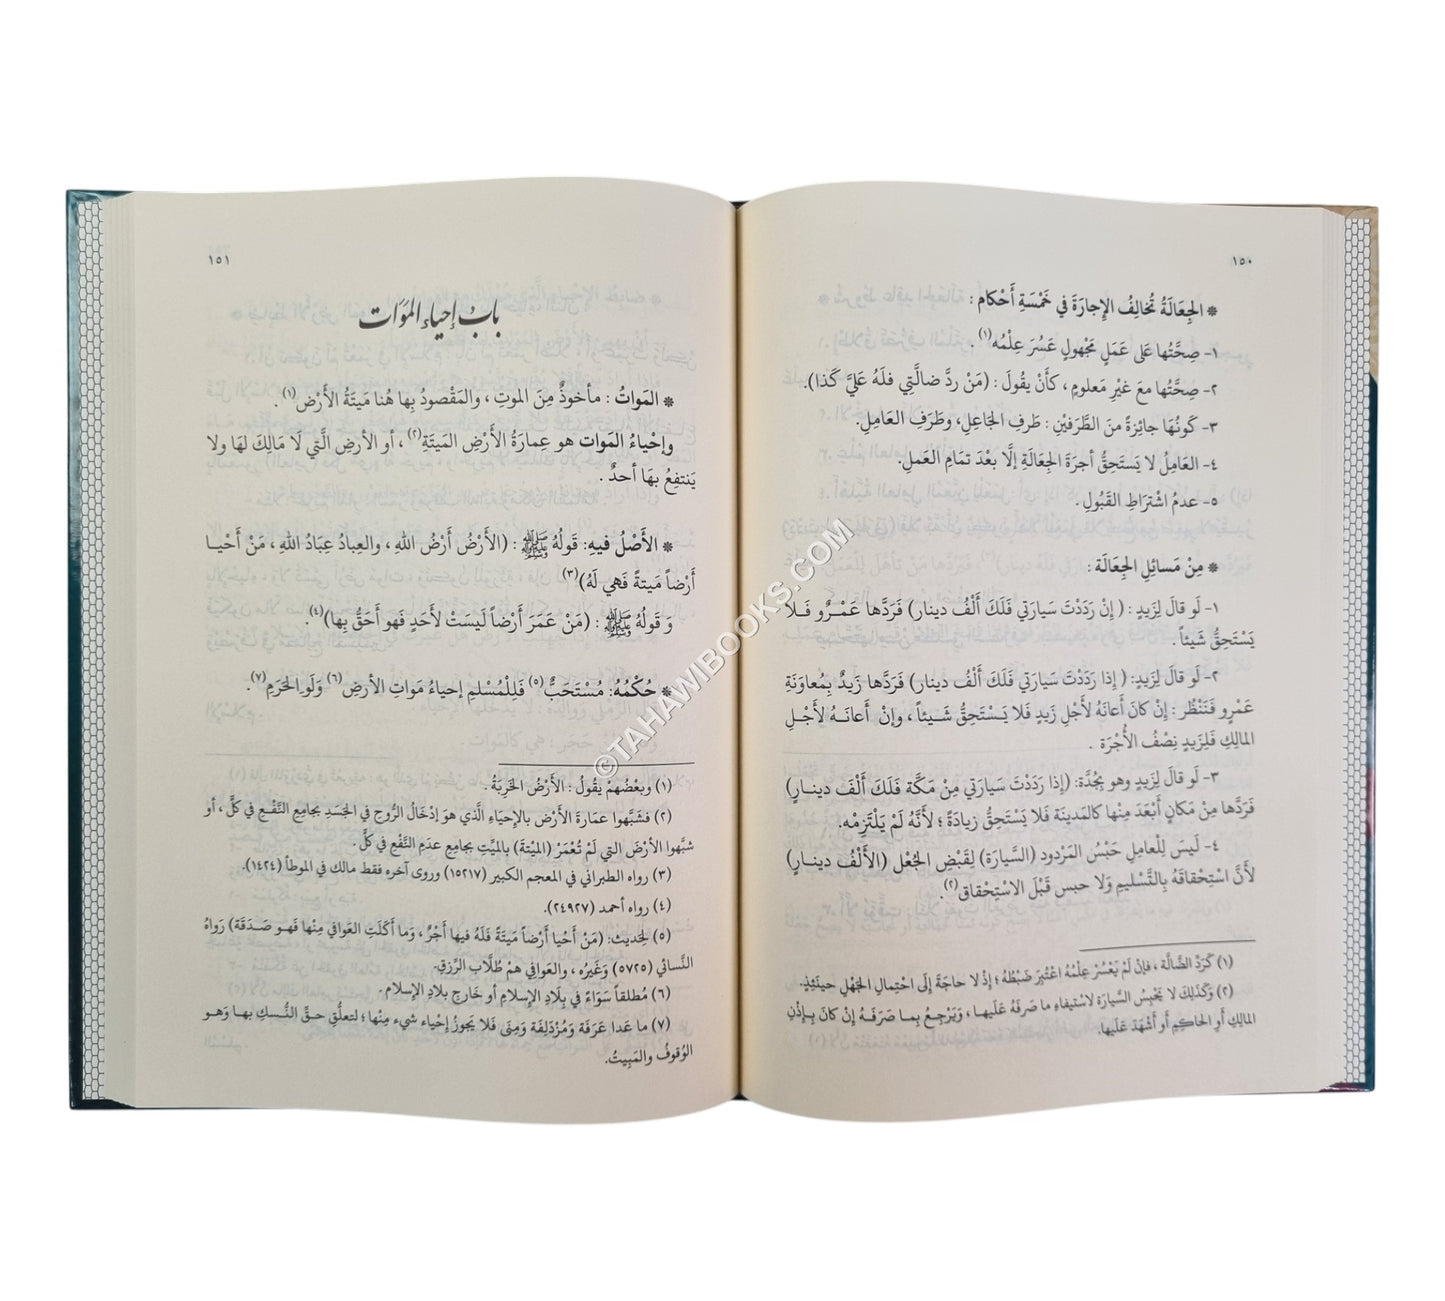 ١٥٠
* الجِعَالَةُ تُخالِفُ الإِجارَةَ في خَمْسَةِ أَحْكام :
١- صِحَّتُها عَلى عَمَلٍ مَجْهولٍ عَسُرَ عِلْمُه(١) .
٢- صِحَّتُها معَ غَيْرِ مَعلومٍ ، كَأَنْ يقُولَ : (مَنْ ردَّ ضالَّتِي فلَهُ عَليَّ كَذا).
٣- كَونُها جائِزةً منَ الطَّرَفَيْنِ : طَرَفِ الجَاعِلِ، وطَرَفِ العَامِلِ.
٤- العَامِلُ لا يَستَحِقُّ أجرَةَ الجِعَالَةِ إلَّا بعْدَ تمَامِ العَملِ.
٥- عدمُ اشْتِراطِ القَبُولِ .
* مِنْ مَسائِلِ الجِعَالَة :
١- لَو قالَ لِزَيدٍ : ( إنْ رَدَدْتَ سَيارَتي فَلَكَ أَلْفُ دينار) فَرَدَّها عَمْـرٌو فَـلَا
يَسْتَحِقُّ شَيئاً .
٢- لَو قالَ لِزَيدٍ: ( إذا رَدَدْتَ سَيارَتي فَلَكَ أَلْفُ دينار) فَرَدَّها زَيدٌ بِمُعاوَنَةِ
عَمْرٍو فَنَنْظُر : إنْ كانَ أعانَهُ لأجْلِ زَيدٍ فَلا يَسْتَحِقُّ شَـيئاً ، وإنْ أعانَـهُ لأجْـلِ
المالِكِ فَلِزَيدٍ نِصْفُ الأُجْرَة .
٣- لَو قالَ لِزَيدٍ وهو بِجُدَّة: (إذا رَدَدْتَ سَيارَتي مِنْ مَكَّة فَلَكَ أَلْفَ دينـارٍ)
فَرَدَّها مِنْ مَكانٍ أَبْعَدَ مِنْها كالمَدينَة فَلا يَسْتَحِقُّ زيادَةً ؛ لأَنَّهُ لَمْ يَلْتَزِمْه.
٤- لَيسَ لِلْعامِلِ حَبْسُ المَرْدود (السَّيارَة) لِقَبْضِ الجُعْل (الأَلْفُ دينـارٍ)
لأَنَّ اسْتِحْقاقَهُ بِالتَّسْليمِ وَلا حبس قَبْلَ الاسْتِحْقاق(٢).
(١) كَرَدِّ الضَّالَّة ، فإنْ لَمْ يَعْسُرْ عِلْمُهُ اعْتُبِرَ ضَبْطُهُ ؛ إذْ لا حاجَةَ إلَى احْتِمالِ الجَهْلِ حينَئِذٍ.
(٢) وَكَذلِكَ لا يَحْبِسُ السَّيارَة لاسْتيفاءِ ما صَرفَهُ عَلَيـها ، وَيَرْجِعُ بِمـا صَرَفَـهُ إنْ كانَ بـإذْنِ
المالِكِ أو الحاكِمِ أو أَشْهَدَ عَلَيها.
١٥١
بابُ إحياء المَوَات
* المَواتُ : مأخوذٌ مِنَ الموتِ ، والمَقْصودُ بِها هُنا مَيتَةُ الأَرْض(١) .
وإحْياءُ المَوات هو عِمارَةُ الأَرْضِ المَيتَةِ(٢) ، أو الأرضِ الَّتي لَا مَالِكَ لهَا ولا
يَنتفِعُ بهَا أحدٌ .
* الأَصْلُ فيهِ: قَولُهُ ﷺ : (الأَرْضُ أَرْضُ اللهِ ، والعِبادُ عِبَادُ اللهِ ، مَنْ أَحْيـا
أَرْضاً مَيتةً فَهي لَهُ)(٣)
وَ قَولُهُ ﷺ : (مَنْ عَمَرَ أَرْضاً لَيسَتْ لأَحَدٍ فَهو أَحَقُّ بِها)(٤).
* حُكْمُهُ: مُسْتَحَبٌّ(٥) فَلِلْمُسْلمِ إحياءُ مَواتِ الأرضِ(٦) وَلَو الحَرَمِ(٧).
(١) وبعْضُهمْ يقُولُ : الأَرْضُ الخَرِبَةُ .
(٢) فشَبَّهوا عمَارةَ الأَرْض بالإحيَاءِ الَّذي هوَ إدْخَالُ الرُّوحِ في الجَسَدِ بجامِعِ النَّفْـعِ في كلٍّ ، أو
شبَّهوا الأَرْضَ التي لَمْ تُعْمَرْ (المَيْتة) بالميِّتِ بجامِعِ عدَمِ النَّفْعِ في كلٍّ.
(٣) رواه الطبراني في المعجم الكبير (١٥٢١٧) وروى آخره فقط مالك في الموطأ (١٤٢٤).
(٤) رواه أحمد (٢٤٩٢٧).
(٥) لحَديث: (مَنْ أَحْيا أَرْضاً مَيتَةً فَلَهُ فيها أَجْرٌ ، وَما أَكَلَتِ العَوافي مِنْها فَهـو صَـدَقَة) رَواهُ
النَّسائي (٥٧٢٥) وَغَيرُه ، والعَوافِي همْ طُلَّاب الرِّزقِ.
(٦) مُطلقاً سَوَاءً في بِلَادِ الإسلامِ أو خَارِج بلادِ الإسلام.
(٧) ما عَدا عَرَفَة وَمُزْدَلِفَة ومِنَى فَلا يَجوزُ إحْياء شَيء مِنْها؛ لتعلُّقِ حـقِّ النُّسكِ بهـا وَهـو
الوُقوفُ والمَبِيتُ.
©TAHAWIBOOKS.COM